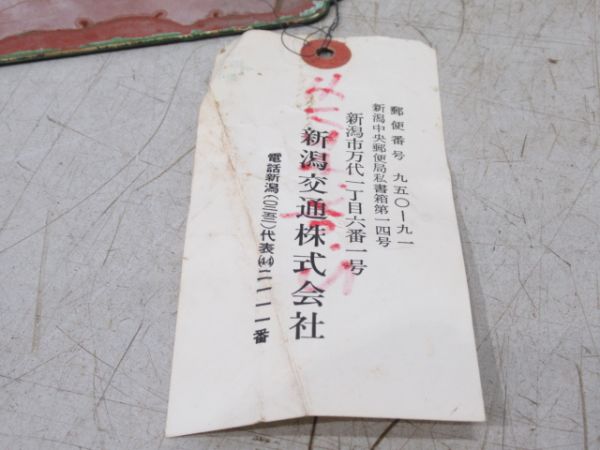 郵便番号 九五〇-九一
新潟中央郵便局私書箱第一四号
新潟市万代一丁目六番一号
新潟交通株式会社
電話新潟(〇二五二)代表(44)二一一一番